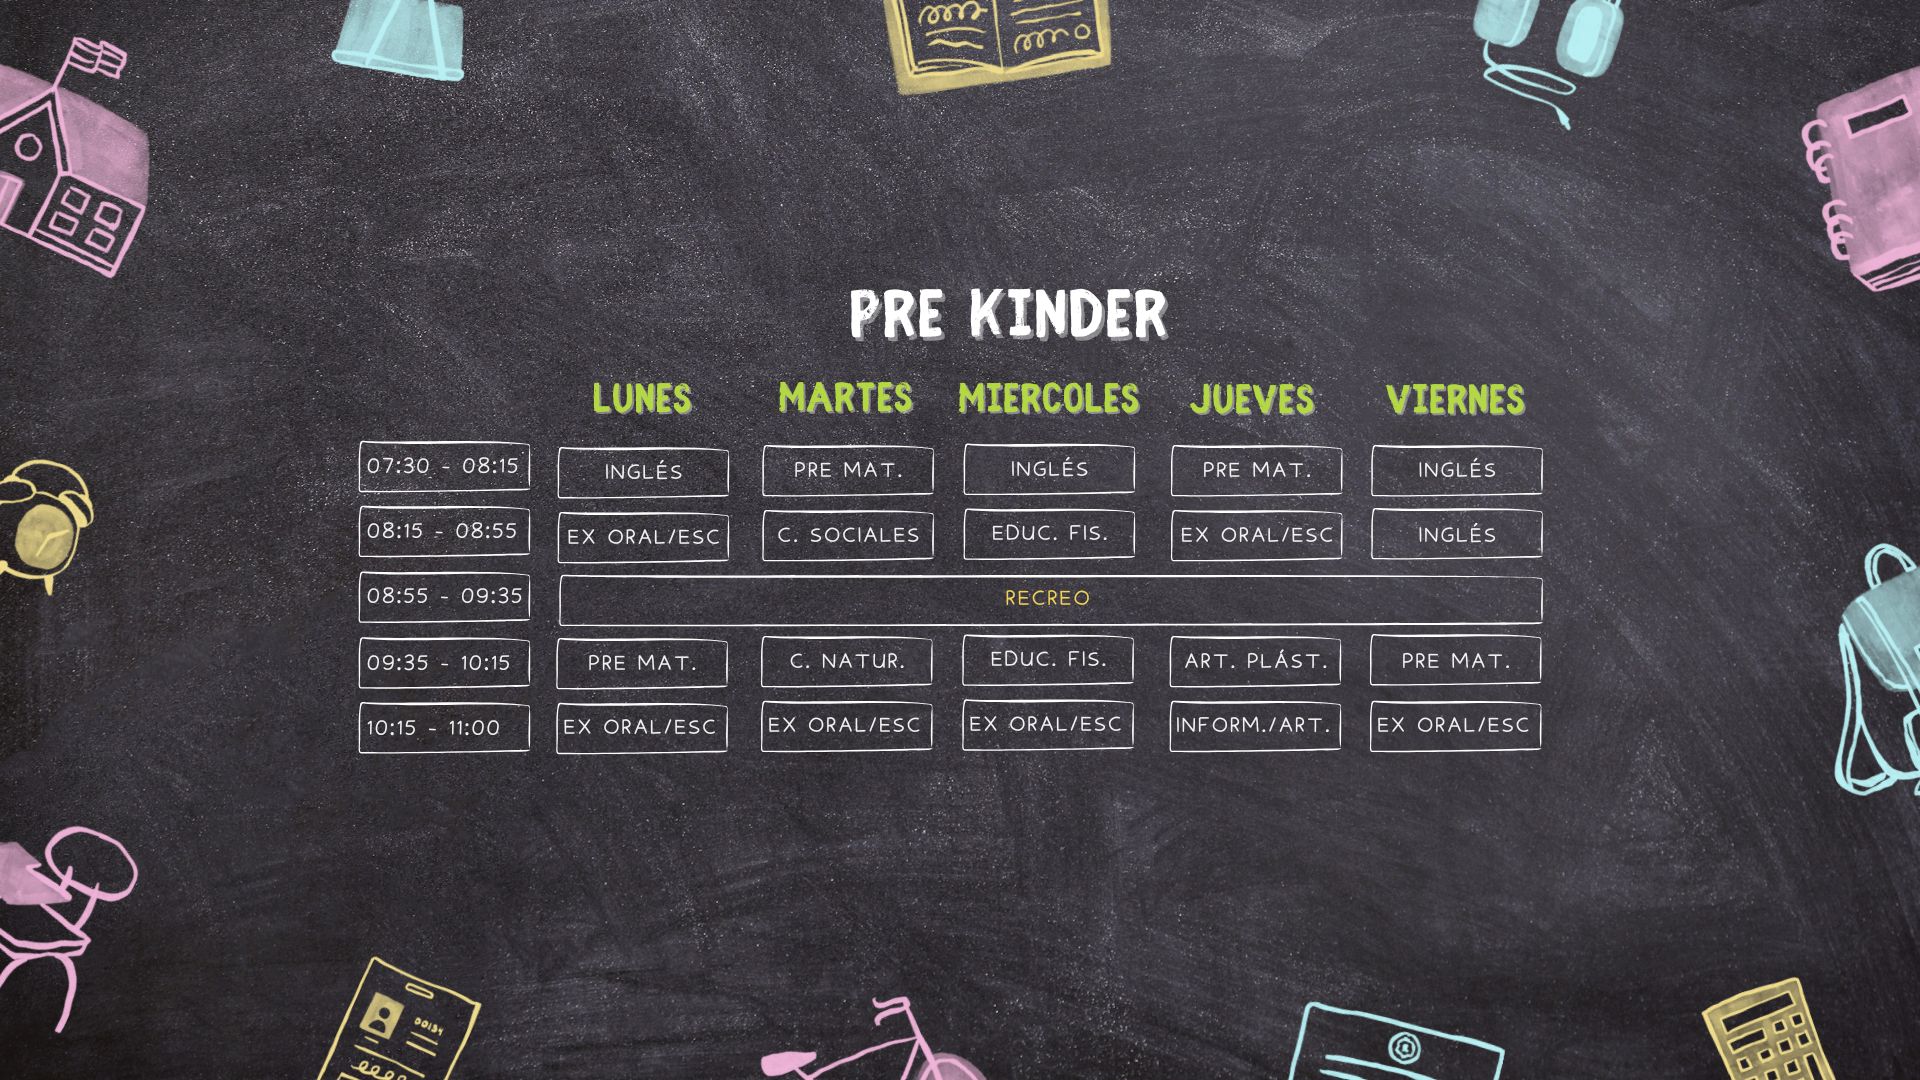 PRE KINDER
LUNES MARTES MIERCOLES JUEVES VIERNES
07:30 - 08:15 INGLÉS PRE MAT. INGLÉS PRE MAT. INGLÉS
08:15 - 08:55 EX ORAL/ESC C. SOCIALES EDUC. FIS. EX ORAL/ESC INGLÉS
08:55 - 09:35 RECREO
09:35 - 10:15 PRE MAT. C. NATUR. EDUC. FIS. ART. PLÁST. PRE MAT.
10:15 - 11:00 EX ORAL/ESC EX ORAL/ESC EX ORAL/ESC INFORM./ART. EX ORAL/ESC
00134